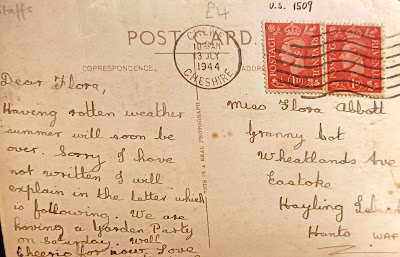 Staffs
£4
U.S. 1509
POST CARD
CORRESPONDENCE.
10 AM
13 JLY
1944
CHESHIRE
POSTAGE
POSTAGE
1D
1D
THIS IS A REAL PHOTOGRAPH
Dear Flora,
Having rotten weather
summer will soon be
over. Sorry I have
not written I will
explain in the letter which
is following. We are
having a Garden Party
on Saturday. Well
Cheerio for now, Love
Miss Flora Abbott
Granny Cot
Wheatlands Ave
Eastoke
Hayling Island
Hants